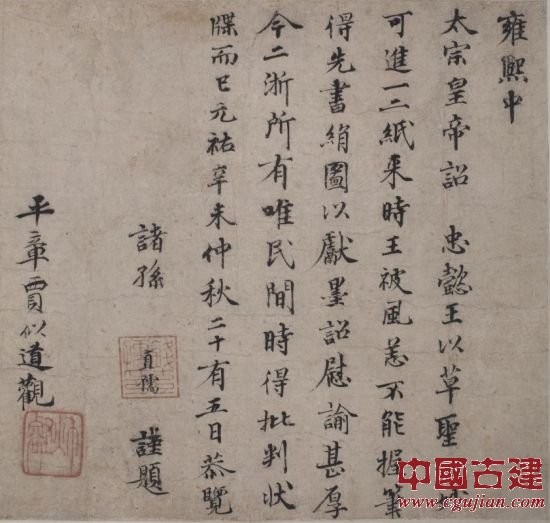 雍熙中
太宗皇帝詔 忠懿王以草聖
可進一二紙來時王被風恙不能握筆
得先書絹圖以獻墨詔慰諭甚厚
今二浙所有唯民間時得批判狀
牒而已元祐辛未仲秋二十有五日恭覽
諸孫 直孺 謹題
平章賈似道觀
中國古建
www.cgujian.com